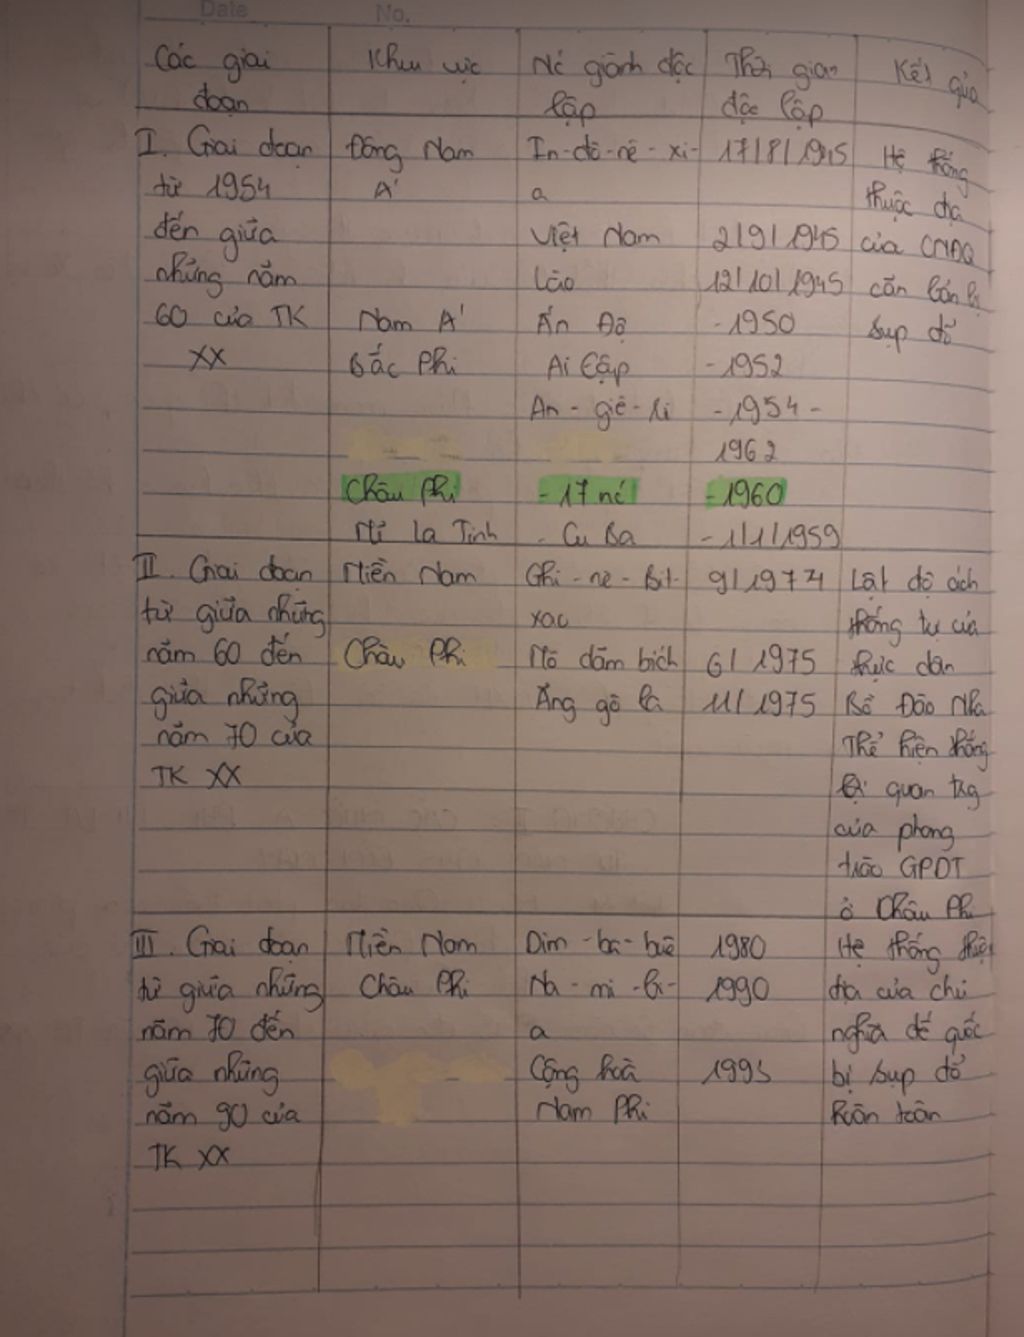 Date No.
Các giai đoạn | Khu vực | Nć giành độc lập | Thời gian độc lập | Kết qủa
I. Giai đoạn | Đông Nam | In-đô-nê-xi- | 17/8/1945 | Hệ thống
từ 1954 | Á | a | | thuộc địa
đến giữa | | Việt Nam | 2/9/1945 | của CNĐQ
những năm | | Lào | 12/10/1945 | căn bản bị
60 của TK | Nam Á | Ấn Độ | - 1950 | sụp đổ
XX | Bắc Phi | Ai Cập | - 1952
An-giê-li | - 1954 -
1962
Châu Phi | - 17 nć | - 1960
Mĩ La Tinh | - Cu Ba | - 1/1/1959
II. Giai đoạn | Miền Nam | Ghi-nê-Bít- | 9/1974 | Lật đổ ách
từ giữa những | | xao | | thống trị của
năm 60 đến | Châu Phi | Mô dăm bích | 6/1975 | thực dân
giữa những | | Ăng gô la | 11/1975 | Bồ Đào Nha
năm 70 của | | | | Thể hiện thắng
TK XX | | | | lợi quan trg
của phong
trào GPDT
ở Châu Phi
III. Giai đoạn | Miền Nam | Dim-ba-buê | 1980 | Hệ thống thuộc
từ giữa những | Châu Phi | Na-mi-bi- | 1990 | địa của chủ
năm 70 đến | | a | | nghĩa đế quốc
giữa những | | Cộng hoà | 1993 | bị sụp đổ
năm 90 của | | Nam Phi | | hoàn toàn
TK XX